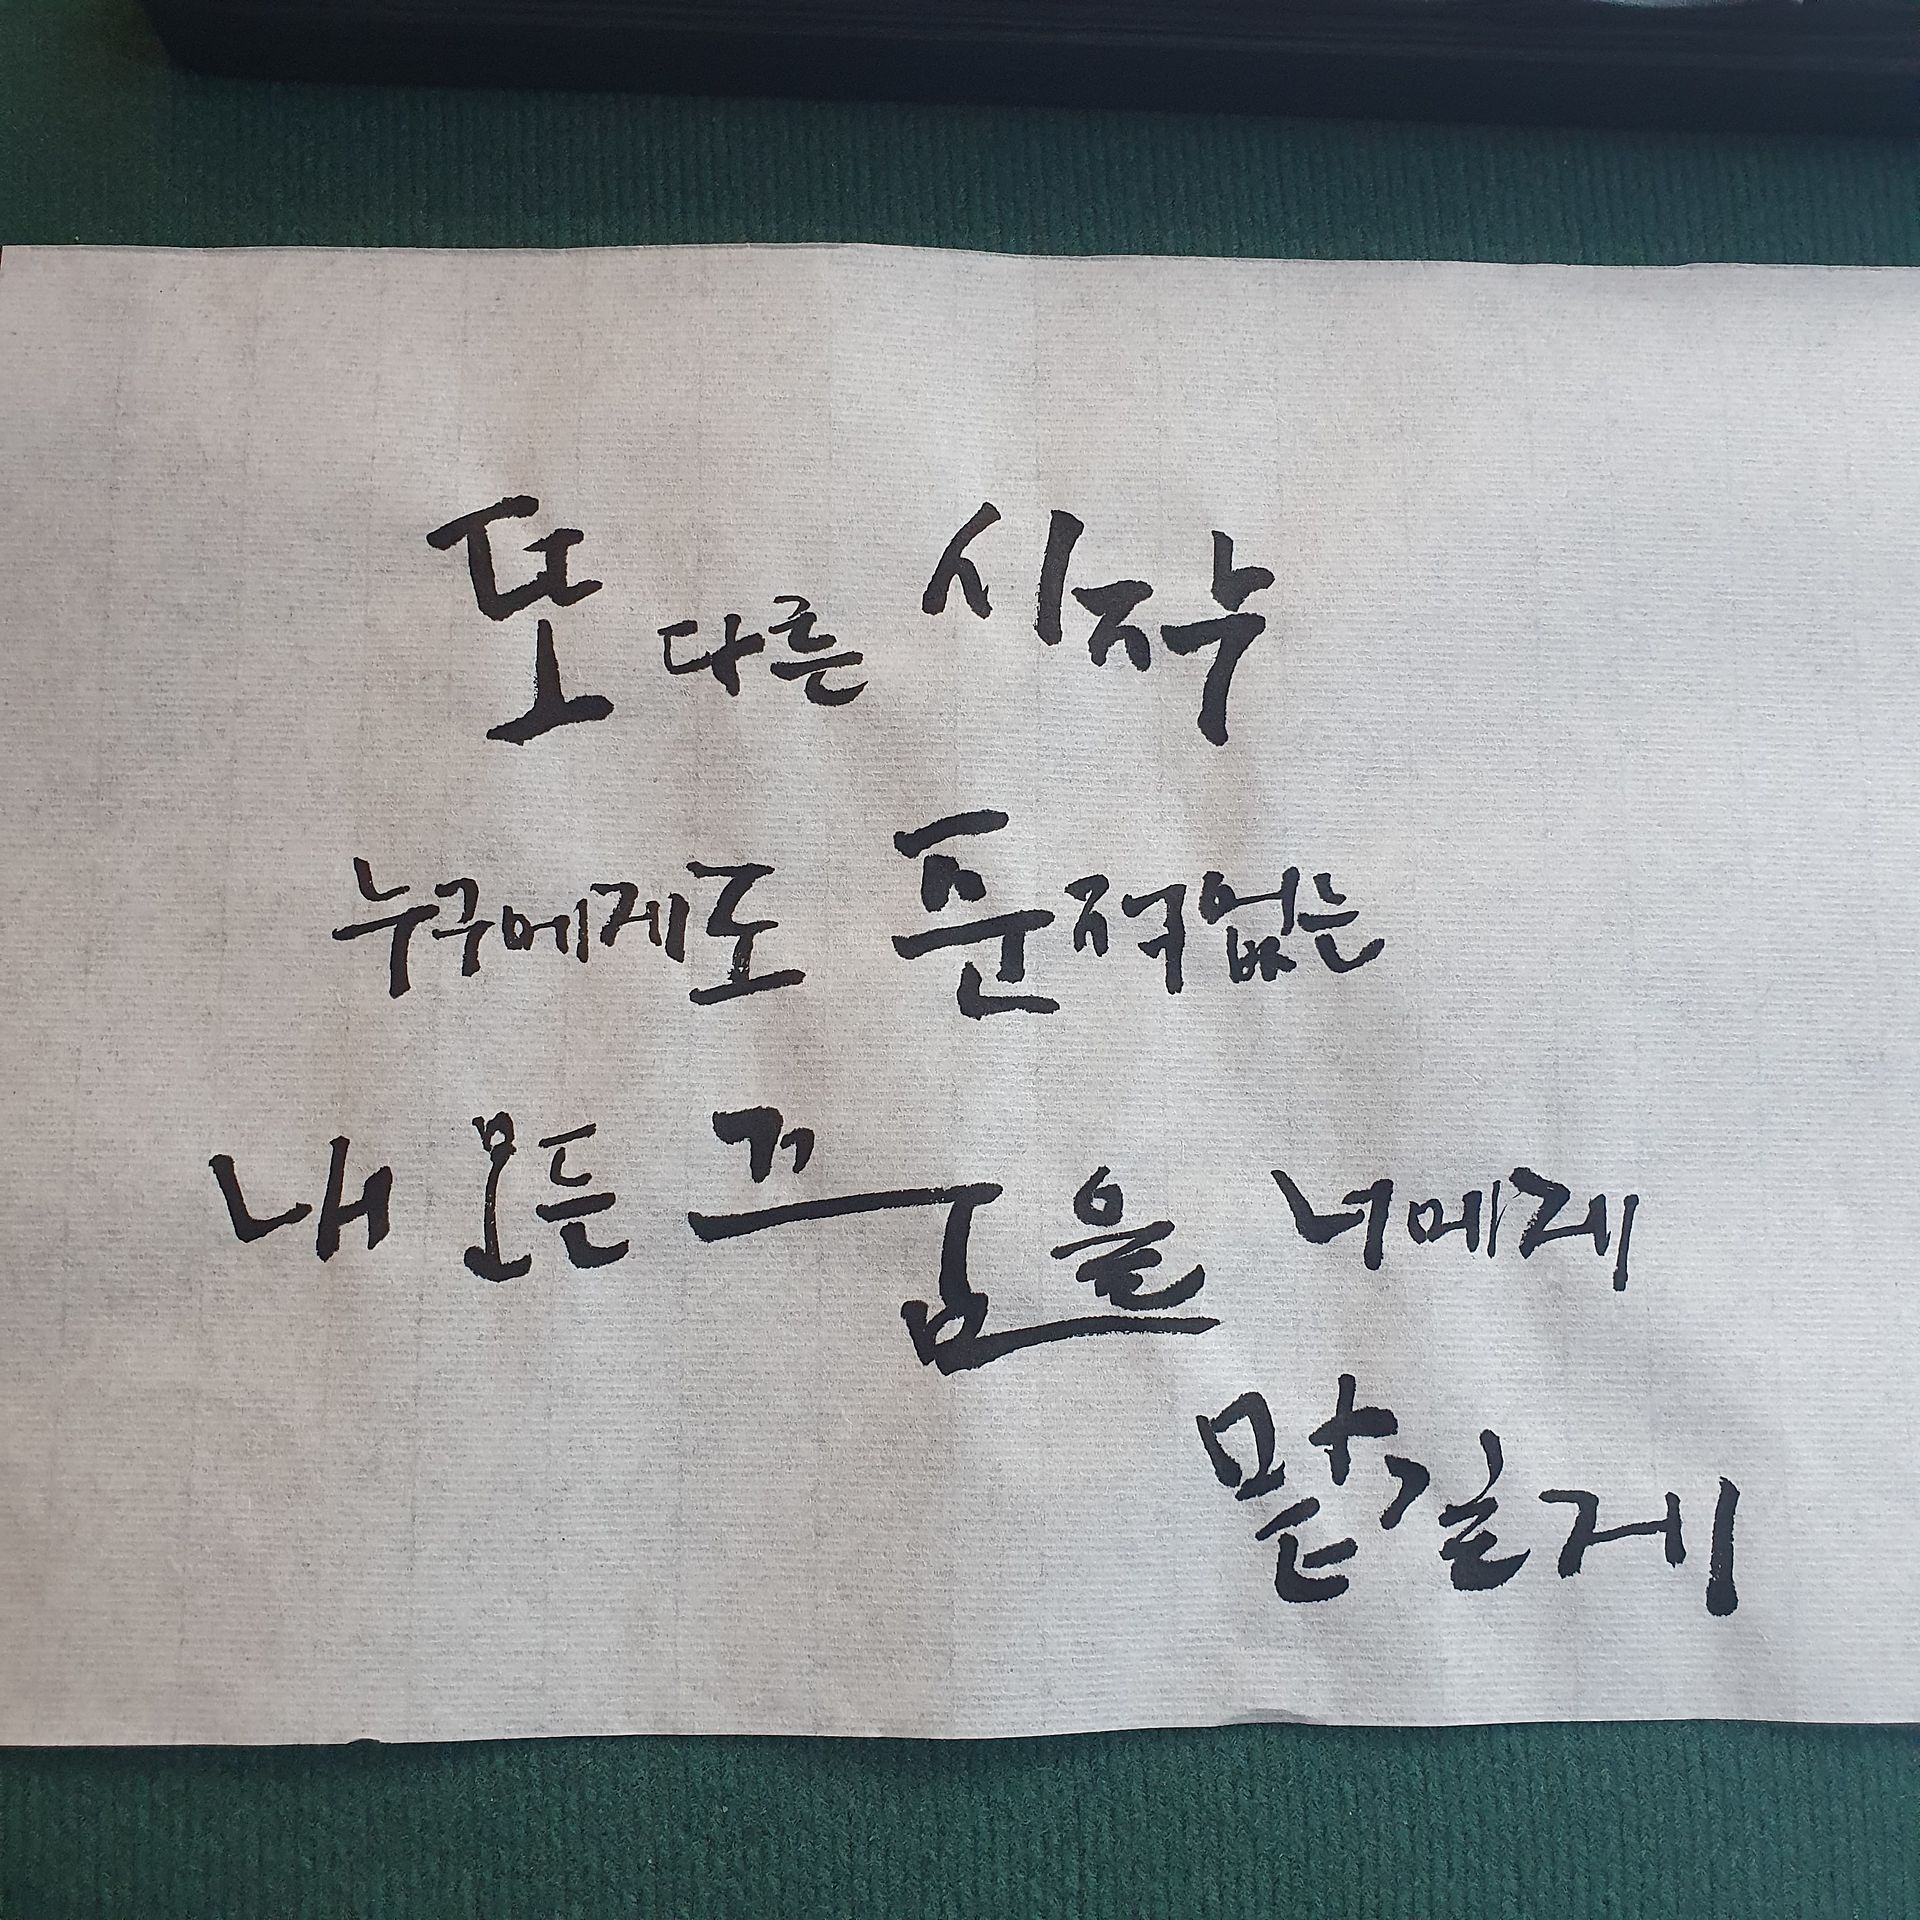 또 다른 시작
누구에게도 흔적없는
내 모든 꿈을 너에게
맡길게